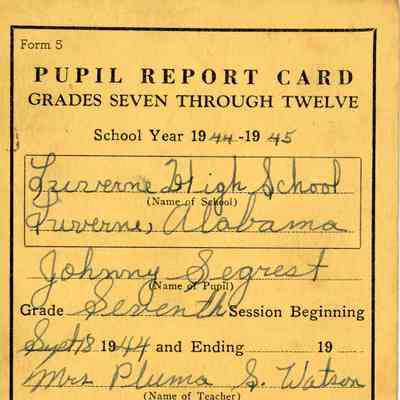 Form 5
PUPIL REPORT CARD
GRADES SEVEN THROUGH TWELVE
School Year 1944-1945
Luverne High School
(Name of School)
Luverne, Alabama
Johnny Segrest
(Name of Pupil)
Grade Seventh Session Beginning
Sept 8 1944 and Ending 19
Mrs Pluma S. Watson
(Name of Teacher)